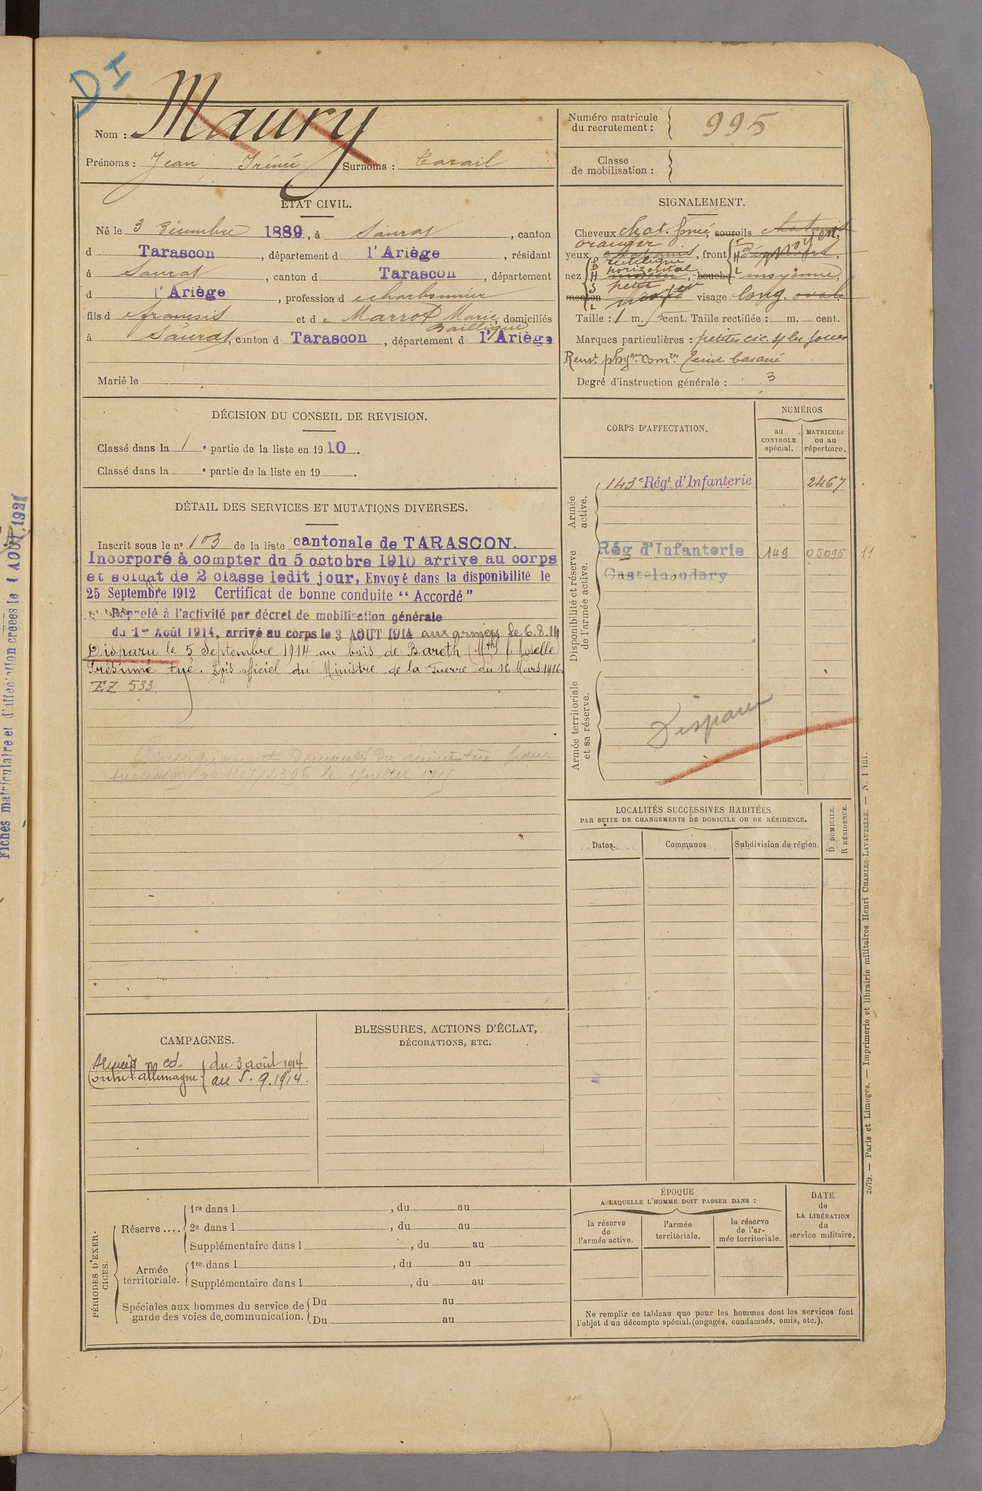 DI
Nom : Maury
Prénoms : Jean Irénée Surnoms :
Numéro matricule du recrutement : 995
Classe de mobilisation :
ÉTAT CIVIL.
Né le 3 Décembre 1889, à Saurat, canton
d Tarascon, département d l'Ariège, résidant
à Saurat, canton d Tarascon, département
d l'Ariège, profession d charbonnier
fils d François et d Marrot Marie domiciliés
à Saurat, canton d Tarascon, département d l'Ariège
Marié le
SIGNALEMENT.
Cheveux chat. foncé, sourcils
yeux oranger, front
nez rectiligne horizontal petit, bouche moyenne,
menton visage long ovale
Taille : 1 m. cent. Taille rectifiée : m. cent.
Marques particulières : petites cic. s/ les joues
Renst. physen. comre. Teint basané
Degré d'instruction générale : 3
DÉCISION DU CONSEIL DE REVISION.
Classé dans la 1 e partie de la liste en 1910.
Classé dans la e partie de la liste en 19 .
CORPS D'AFFECTATION.
NUMÉROS
au CONTROLE spécial.
MATRICULE ou au répertoire.
Armée active.
143e Régt d'Infanterie 2467
Disponibilité et réserve de l'armée active.
Rég d'Infanterie 149 05095 11
Castelnaudary
Armée territoriale et sa réserve.
Disparu
DÉTAIL DES SERVICES ET MUTATIONS DIVERSES.
Inscrit sous le no 103 de la liste cantonale de TARASCON.
Incorporé à compter du 5 octobre 1910 arrivé au corps
et soldat de 2 classe ledit jour, Envoyé dans la disponibilité le
25 Septembre 1912 Certificat de bonne conduite "Accordé"
Rappelé à l'activité par décret de mobilisation générale
du 1er Août 1914, arrivé au corps le 3 AOUT 1914 aux armées le 6.8.14
Disparu le 5 Septembre 1914 au bois de Bareth (Mthe & Moselle
Présumé tué. Avis officiel du Ministre de la Guerre du 16 Mars 1916
EZ 533.
LOCALITÉS SUCCESSIVES HABITÉES
PAR SUITE DE CHANGEMENTS DE DOMICILE OU DE RÉSIDENCE.
Dates.
Communes
Subdivision de région.
D DOMICILE.
R RÉSIDENCE.
CAMPAGNES.
contre allemagne du 3 août 1914
au 5.9.1914.
BLESSURES, ACTIONS D'ÉCLAT,
DÉCORATIONS, ETC.
PÉRIODES D'EXERCICES.
Réserve ....
1re dans l , du au
2e dans l , du au
Supplémentaire dans l , du au
Armée territoriale.
1re dans l , du au
Supplémentaire dans l , du au
Spéciales aux hommes du service de garde des voies de communication.
Du au
Du au
ÉPOQUE
A LAQUELLE L'HOMME DOIT PASSER DANS :
la réserve de l'armée active.
l'armée territoriale.
la réserve de l'armée territoriale.
DATE de LA LIBÉRATION du service militaire.
Ne remplir ce tableau que pour les hommes dont les services font
l'objet d'un décompte spécial (engagés, condamnés, omis, etc.).
2079. — Paris et Limoges. — Imprimerie et librairie militaires Henri CHARLES-LAVAUZELLE. — N. 1 int.
Fiches matriculaire et d'affectation créées le 1 AOUT 1921